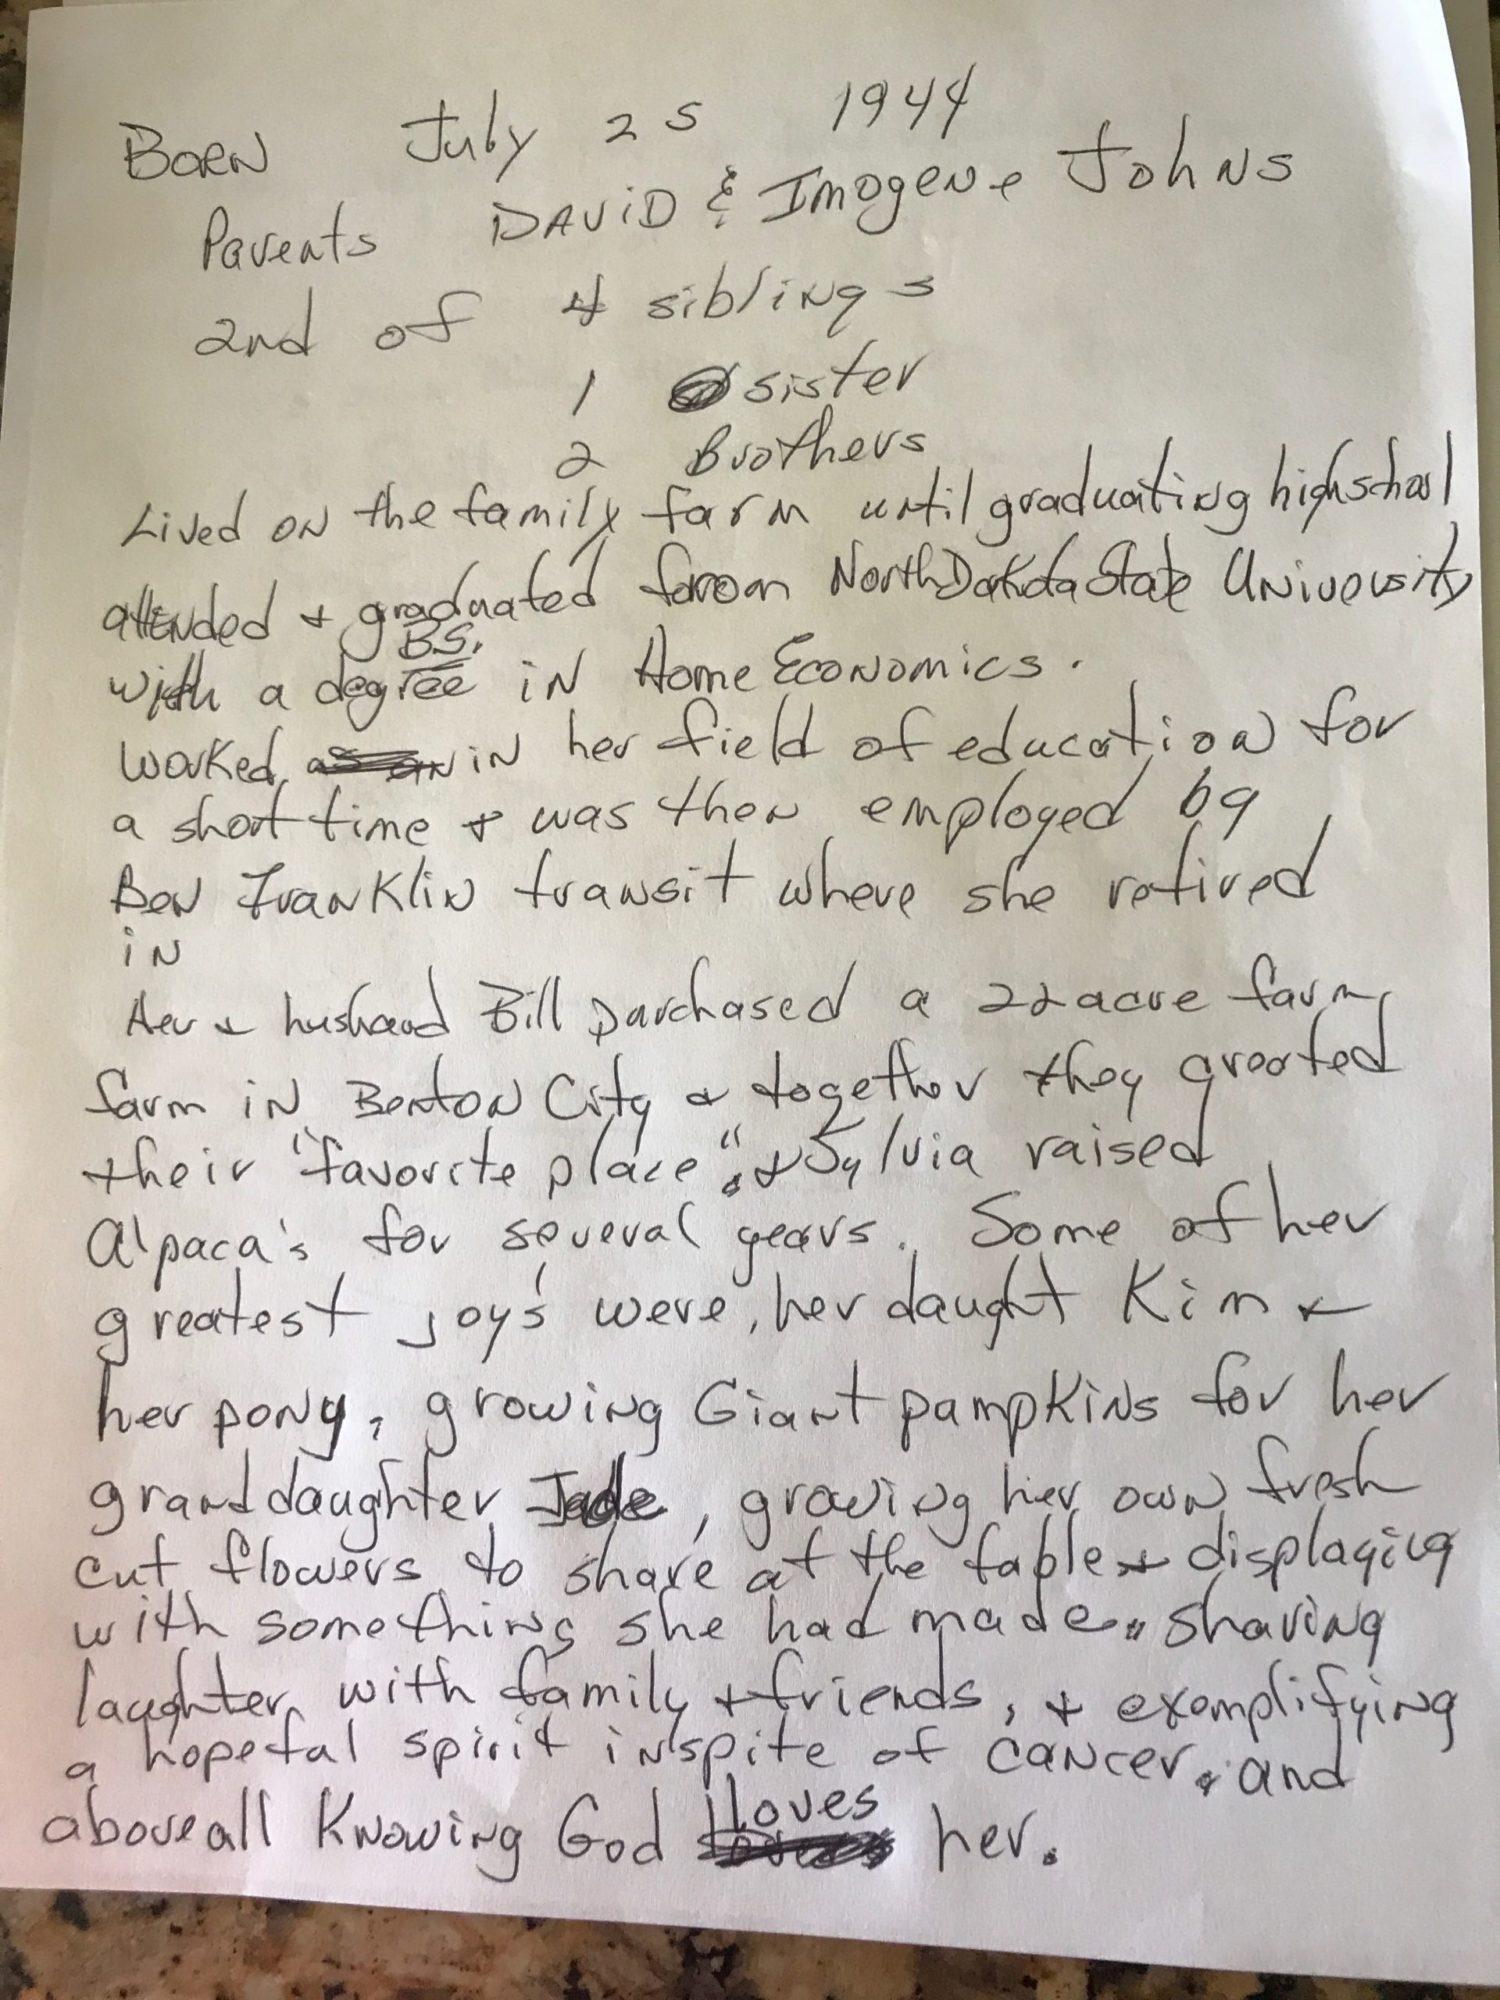 Born July 25 1944
Parents David & Imogene Johns
2nd of 4 siblings
1 sister
2 Brothers
Lived on the family farm until graduating highschool
attended & graduated from North Dakota State University
B.S.
with a degree in Home Economics.
worked in her field of education for
a short time & was then employed by
Ben Franklin transit where she retired
in
Her & husband Bill purchased a 22 acre farm,
farm in Benton City & together they greated
their "favorite place". & Sylvia raised
Alpaca's for several years. Some of her
greatest joy's were, her daught Kim &
her pony, growing Giant pumpkins for her
granddaughter Jade, growing her own fresh
cut flowers to share at the table & displaying
with something she had made, sharing
laughter with family & friends, & exemplifying
a hopeful spirit inspite of cancer, and
above all knowing God loves her.